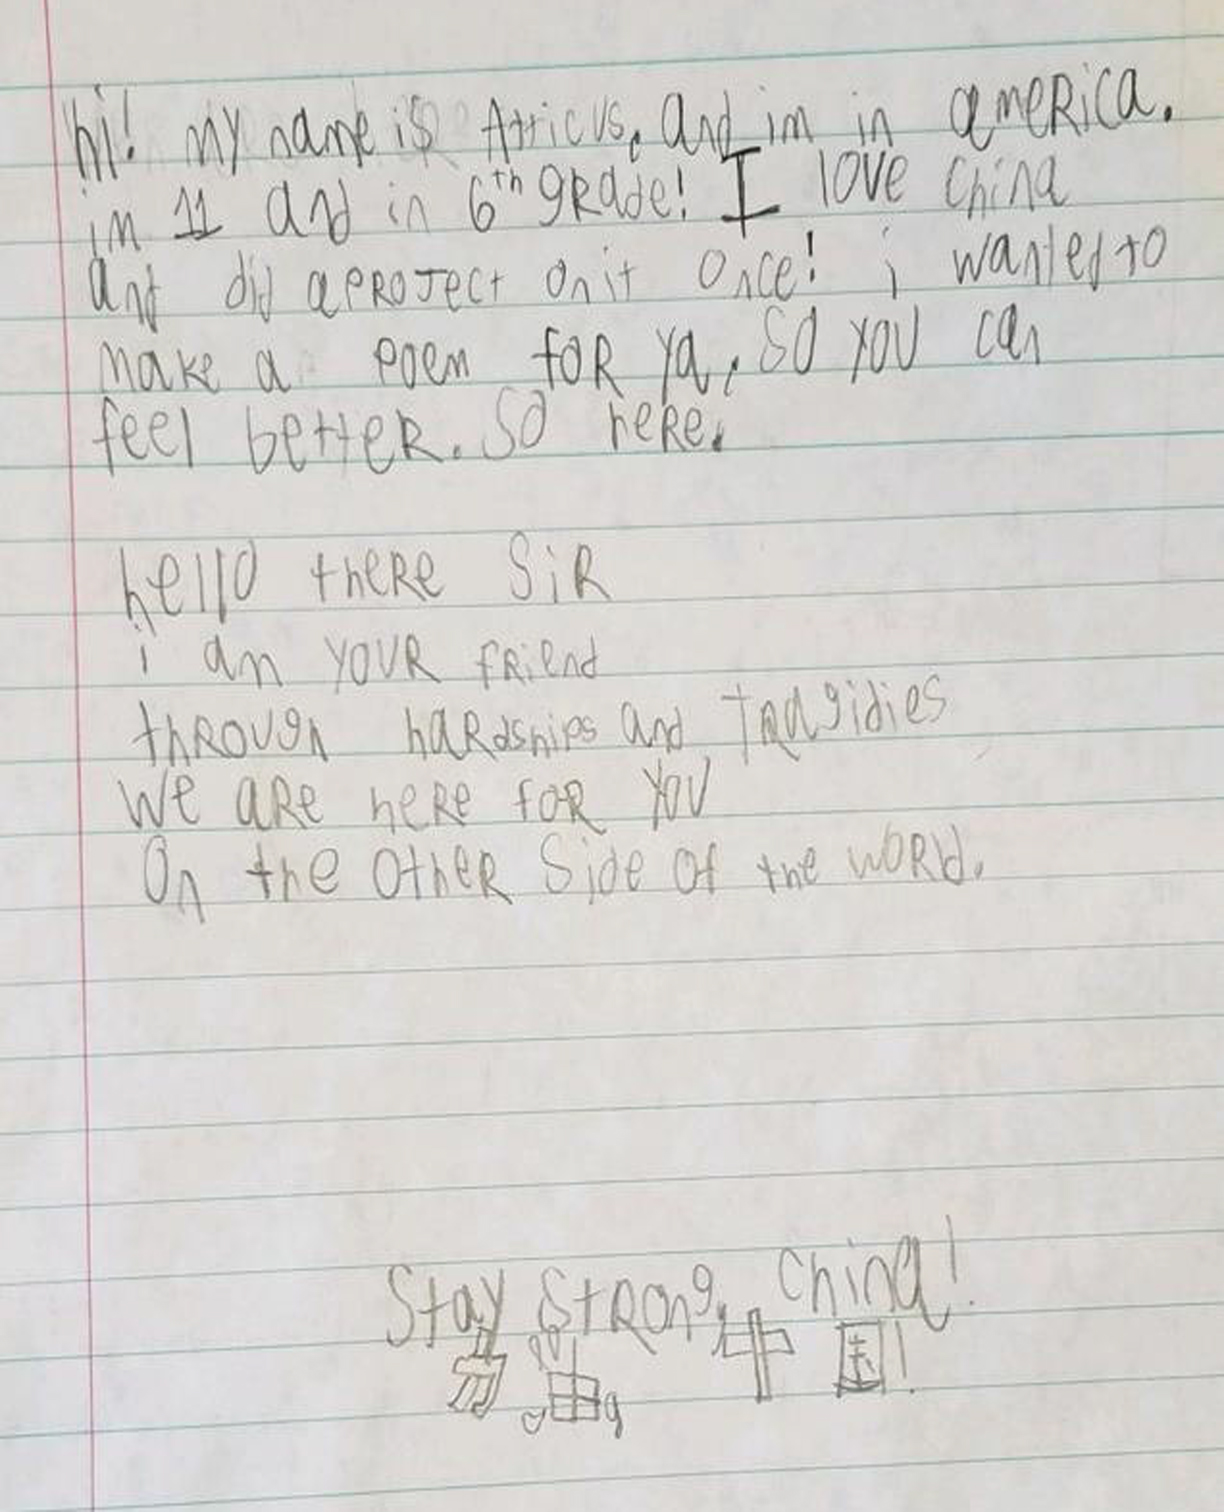 hi! my name is Atticus. and im in america.
im 11 and in 6th grade! I love china
and did a project on it once! i wanted to
make a poem for ya, so you can
feel better. So here.
hello there Sir
i am your friend
through hardships and tragidies
we are here for you
On the other Side of the world.
Stay Strong, China!
加油 中国!